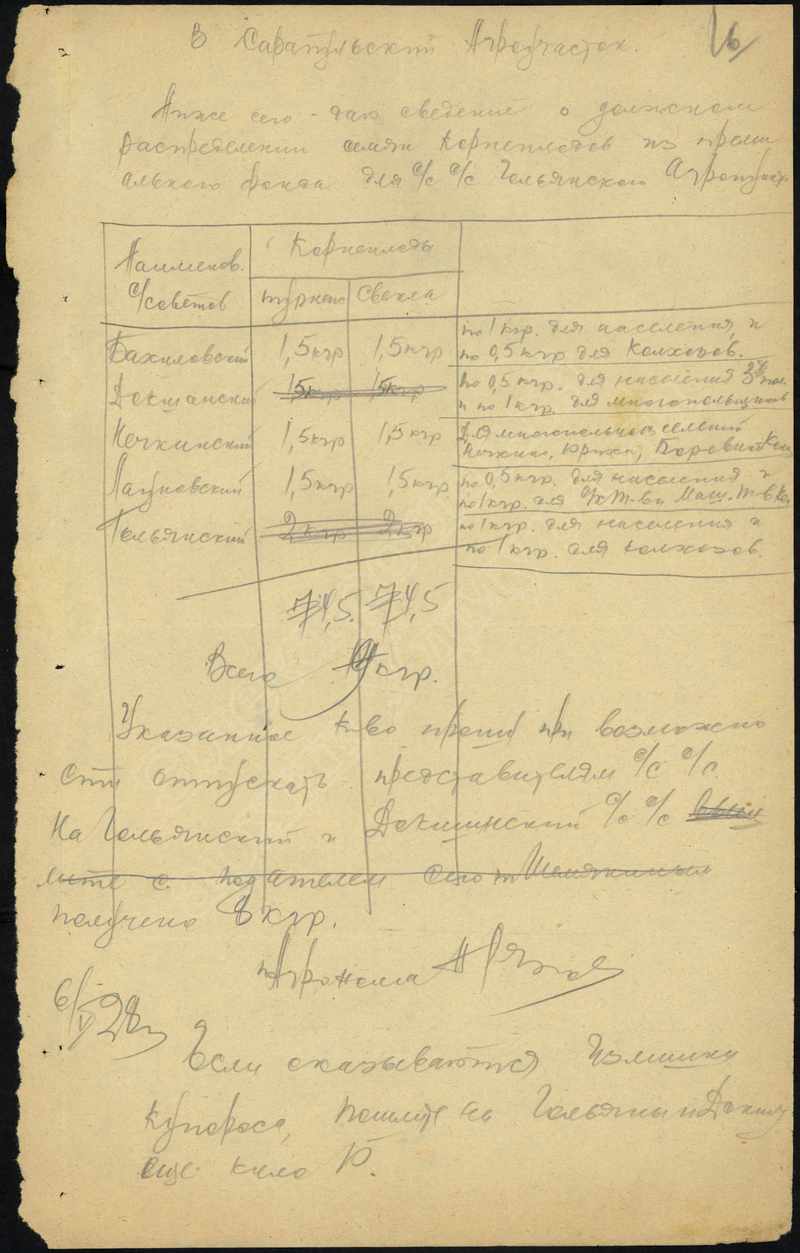 В Сарапульский Агроучасток.
6
Ниже сего даю сведение о должном
распределении семян корнеплодов из
ального фонда для с/с с/с Гольянского
Наименов. с/советов
Корнеплоды
турнепс свекла
Бахиловский 1,5 кгр 1,5 кгр по 1 кгр. для населения и
по 0,5 кгр для колхозов.
Докшанский 1,5 кгр 1,5 кгр по 0,5 кгр. для населения
и по 1 кгр. для многопольщиков
Нечкинский 1,5 кгр 1,5 кгр Для многопольных селений
Нечкино, Юриха,
Лагуновский 1,5 кгр 1,5 кгр по 0,5 кгр. для населения и
по 1 кгр. для с/х т-ва Маш. т-в
Гольянский 2 кгр 2 кгр по 1 кгр. для населения и
по 1 кгр. для колхозов.
4,5. 4,5
Всего 9 кгр.
Указанное к-во прошу при возможно
сти отпускать представителям с/с с/с.
На Гольянский и Докшинский с/с с/с
с подателем сего
получено 8 кгр.
Агронома
6/V 28 г.
Если оказываются излишки
купороса, пошлите на Гольяны и
еще кило 10.